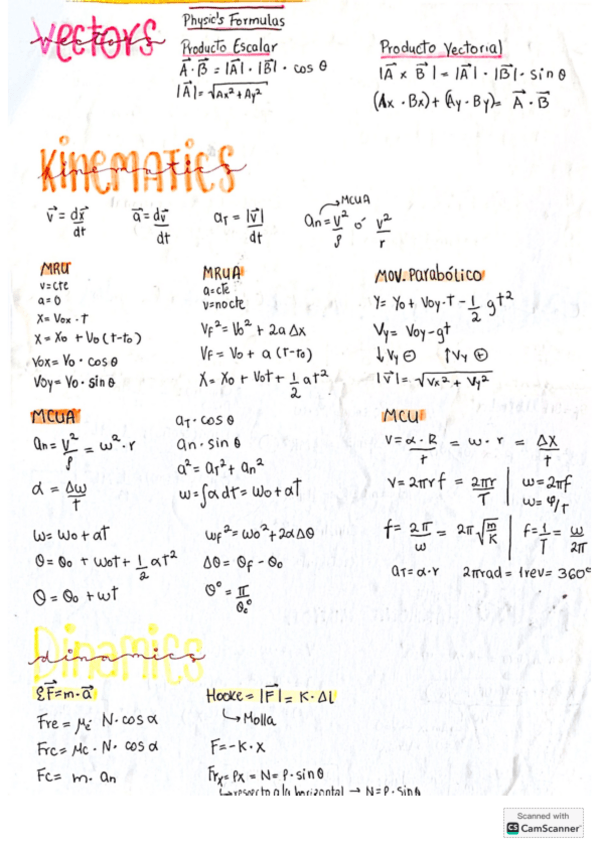 Vectors
vectors
Physic's Formulas
Producto Escalar
A⃗ · B⃗ = |A⃗| · |B⃗| · cos θ
|A⃗| = √Ax² + Ay²
Producto Vectorial
|A⃗ x B⃗| = |A⃗| · |B⃗| · sin θ
(Ax · Bx) + (Ay · By) = A⃗ · B⃗
Kinematics
kinematics
v⃗ = dx⃗/dt
a⃗ = dv⃗/dt
aT = |v⃗|/dt
an = v²/ρ ó v²/r
→ MCUA
MRU
v = cte
a = 0
x = Vox · t
x = xo + Vo (t - to)
Vox = Vo · cos θ
Voy = Vo · sin θ
MRUA
a = cte
v = no cte
Vf² = Vo² + 2a Δx
Vf = Vo + a (t - to)
x = xo + Vot + 1/2 at²
MOV. Parabólico
Y = Yo + Voy · t - 1/2 gt²
Vy = Voy - gt
↓Vy ⊖ ↑Vy ⊕
|V⃗| = √Vx² + Vy²
MCUA
an = v²/ρ = ω² · r
α = Δω/t
ω = ωo + αt
θ = θo + ωot + 1/2 αt²
θ = θo + ωt
aT · cos θ
an · sin θ
a² = aT² + an²
ω = ∫α dt = ωo + αt
ωf² = ωo² + 2αΔθ
Δθ = θf - θo
θ° = π/θc°
MCU
v = α · R/t = ω · r = Δx/t
v = 2πrf = 2πr/T | ω = 2πf
ω = φ/t
f = 2π/ω = 2π √m/k | f = 1/T = ω/2π
aT = α · r 2π rad = 1 rev = 360°
Dinamics
dinamics
ΣF⃗ = m · a⃗
Fre = μe · N · cos α
Frc = μc · N · cos α
Fc = m · an
Hooke = |F⃗| = K · ΔL
↳ Molla
F = -K · x
Frx = Px = N = P · sin θ
↳ respecto a la horizontal → N = P · sin θ
Scanned with
CS CamScanner